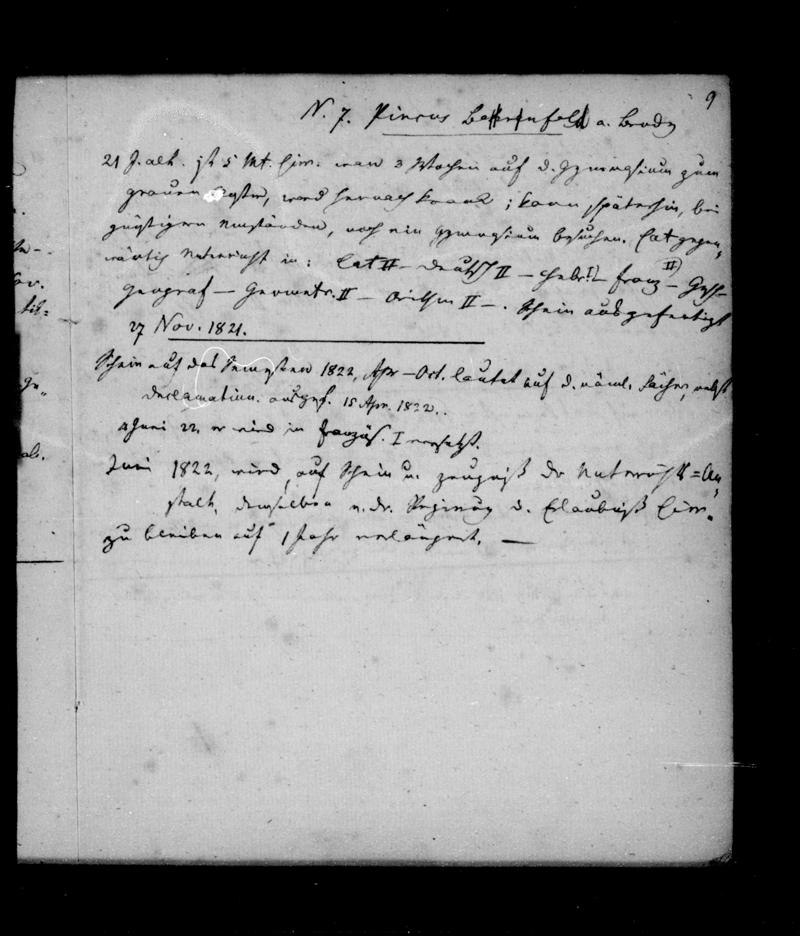 9
N. 7. Pincus Bernfeld a. Brody
21 J. alt. ist 5 Mt. hier. war 3 Wochen auf d. Gymnasium zum
grauen Kloster, ward hernach krank; kann späterhin, bei
günstigern Umständen, noch ein Gymnasium besuchen. Hat gegen-
wärtig Unterricht in: Lat II – deutsch II – Hebr. II – franz II – Gesch –
Geograf – Geometr. II – Arithm II –. Schein ausgefertigt
27 Nov. 1821.
Schein auf das Semester 1822, Apr – Oct. lautet auf d. näml. Fächer, nebst
Declamation. ausgef. 15 Apr. 1822.
4 Juni 22. er wird in französ. I versetzt.
Juni 1822, wird, auf Schein u. Zeugniß der Unterrichts=An-
stalt, demselben v. dr. Regirung d. Erlaubniß hier
zu bleiben auf 1 Jahr verlängert. —